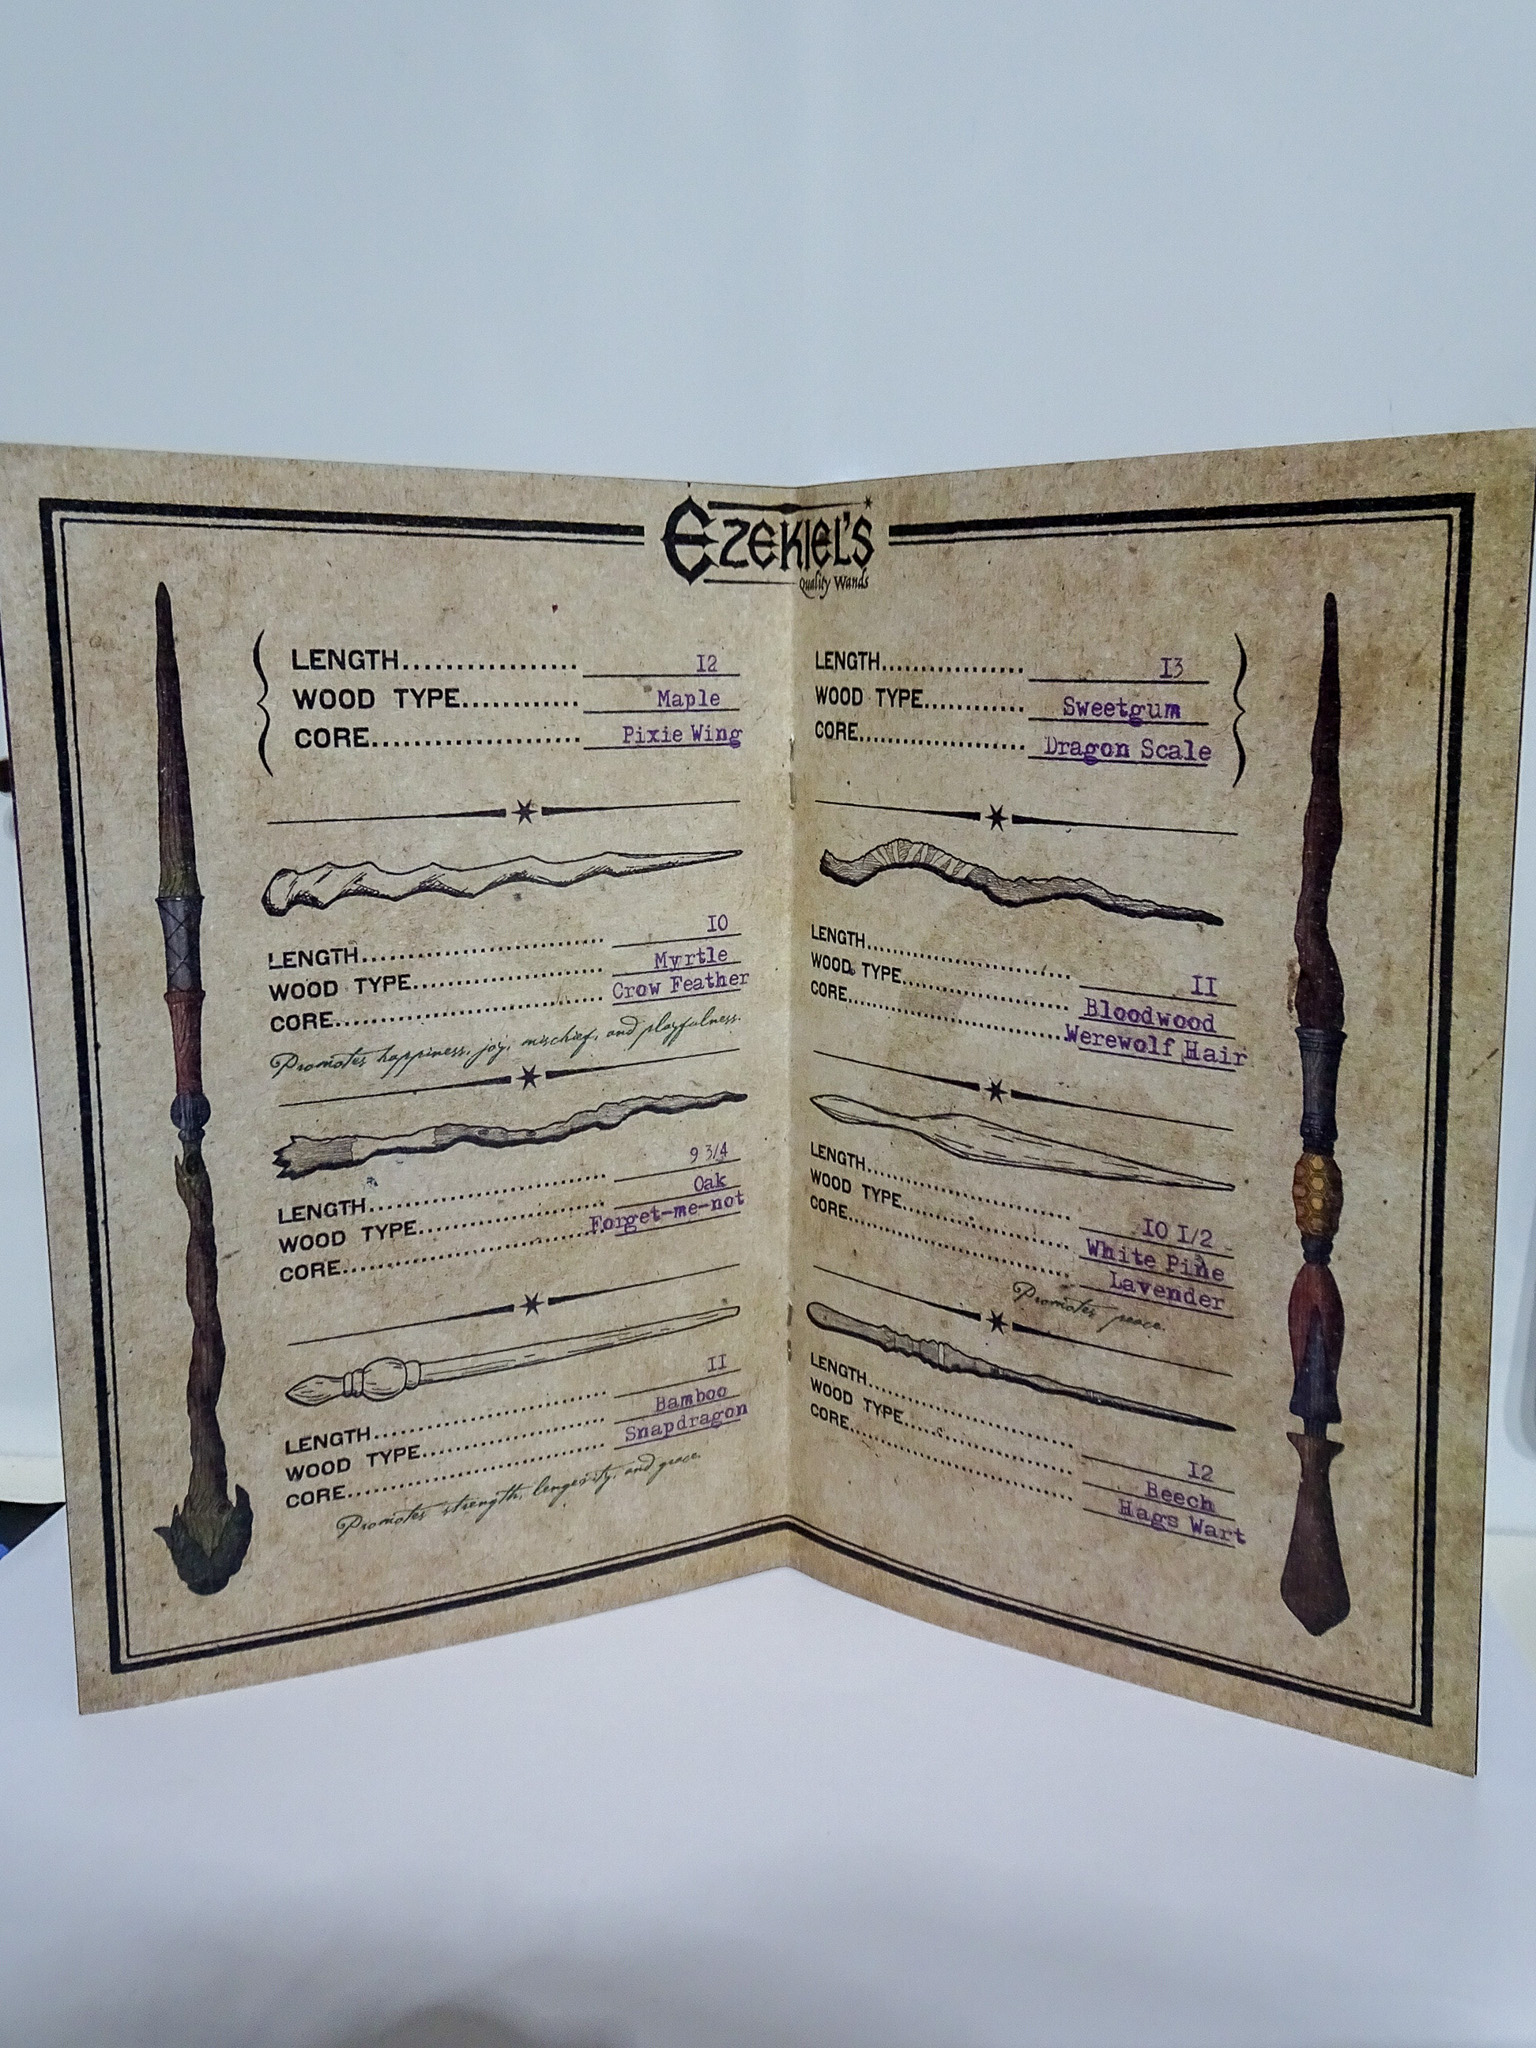 EZEKIEL'S
Quality Wands
LENGTH.................. 12
WOOD TYPE............ Maple
CORE..................... Pixie Wing
LENGTH........................... 10
WOOD TYPE...................... Myrtle
CORE.............................. Crow Feather
Promotes happiness, joy, mischief, and playfulness.
LENGTH........................... 9 3/4
WOOD TYPE...................... Oak
CORE.............................. Forget-me-not
LENGTH........................... 11
WOOD TYPE...................... Bamboo
CORE.............................. Snapdragon
Promotes strength, longevity, and grace.
LENGTH.................. 13
WOOD TYPE............ Sweetgum
CORE..................... Dragon Scale
LENGTH........................... 11
WOOD TYPE...................... Bloodwood
CORE.............................. Werewolf Hair
LENGTH........................... 10 1/2
WOOD TYPE...................... White Pine
CORE.............................. Lavender
Promotes peace.
LENGTH........................... 12
WOOD TYPE...................... Beech
CORE.............................. Hags Wart